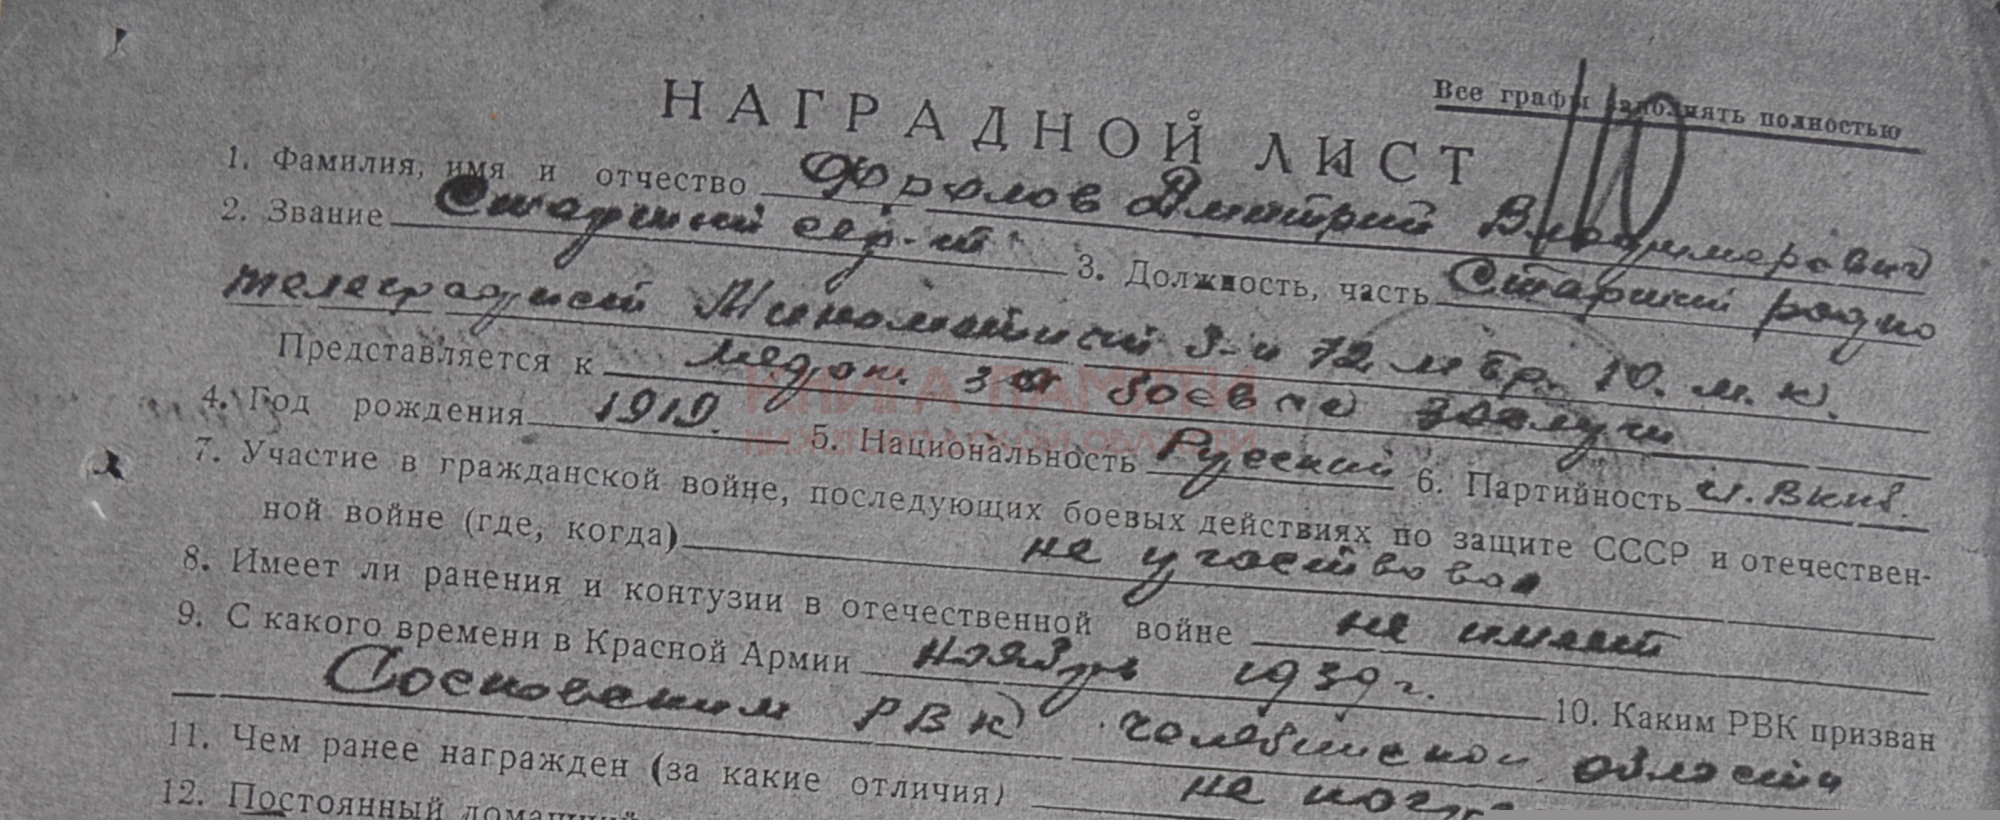 Все графы заполнять полностью
НАГРАДНОЙ ЛИСТ
1. Фамилия, имя и отчество Фролов Дмитрий Владимирович
2. Звание Старший сер-нт 3. Должность, часть Старший радио
телеграфист Минометной 3-и 72 м бр. 10. м. к.
Представляется к медал. за боевые заслуги
4. Год рождения 1919. 5. Национальность Русский 6. Партийность чл. ВКПб.
7. Участие в гражданской войне, последующих боевых действиях по защите СССР и отечествен-
ной войне (где, когда) не участвовал
8. Имеет ли ранения и контузии в отечественной войне не имеет
9. С какого времени в Красной Армии ноябрь 1939 г. 10. Каким РВК призван
Сосновским РВК Челябинской области
11. Чем ранее награжден (за какие отличия) не
12. Постоянный домашний
КНИГА ПАМЯТИ
НИЖЕГОРОДСКОЙ ОБЛАСТИ